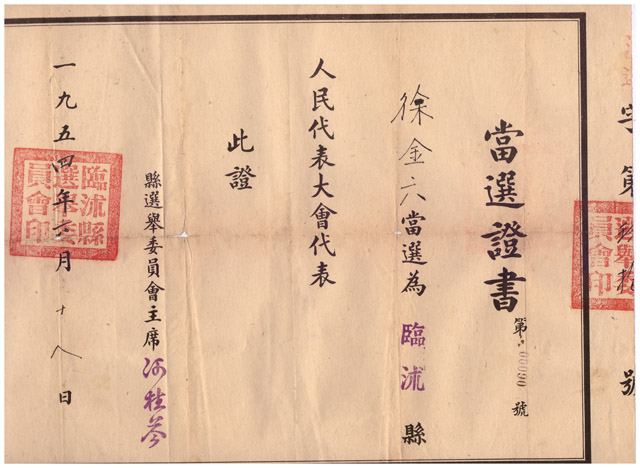 字第號
當選證書
第00090號
徐金六當選為臨沭縣
人民代表大會代表
此證
縣選舉委員會主席
一九五四年六月十八日
臨沭縣選舉委員會印